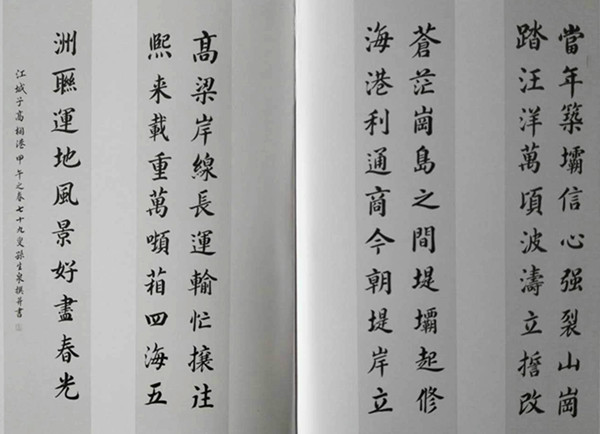 當年築壩信心强裂山崗
踏汪洋萬頃波濤立誓改
蒼茫崗島之間堤壩起修
海港利通商今朝堤岸立
高梁岸線長運輸忙攘往
熙来載重萬噸箱四海五
洲聯運地風景好盡春光
江城子高欄港甲午之春七十九叟孫生泉撰并書